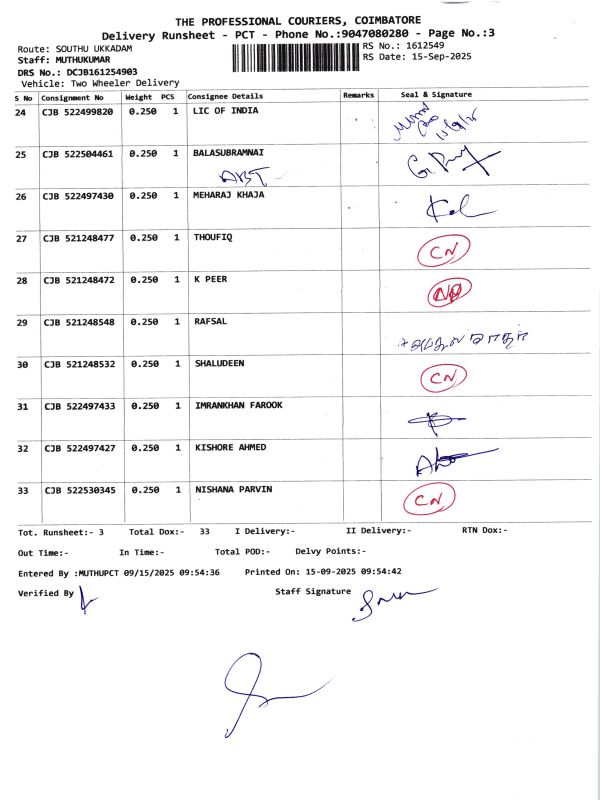 THE PROFESSIONAL COURIERS, COIMBATORE
Delivery Runsheet - PCT - Phone No.:9047080280 - Page No.:3
Route: SOUTHU UKKADAM RS No.: 1612549
Staff: MUTHUKUMAR RS Date: 15-Sep-2025
DRS No.: DCJB161254903
Vehicle: Two Wheeler Delivery
S No Consignment No Weight PCS Consignee Details Remarks Seal & Signature
24 CJB 522499820 0.250 1 LIC OF INDIA
25 CJB 522504461 0.250 1 BALASUBRAMNAI
ABT
26 CJB 522497430 0.250 1 MEHARAJ KHAJA
27 CJB 521248477 0.250 1 THOUFIQ CN
28 CJB 521248472 0.250 1 K PEER
29 CJB 521248548 0.250 1 RAFSAL
30 CJB 521248532 0.250 1 SHALUDEEN CN
31 CJB 522497433 0.250 1 IMRANKHAN FAROOK
32 CJB 522497427 0.250 1 KISHORE AHMED
33 CJB 522530345 0.250 1 NISHANA PARVIN CN
Tot. Runsheet:- 3 Total Dox:- 33 I Delivery:- II Delivery:- RTN Dox:-
Out Time:- In Time:- Total POD:- Delvy Points:-
Entered By :MUTHUPCT 09/15/2025 09:54:36 Printed On: 15-09-2025 09:54:42
Verified By Staff Signature